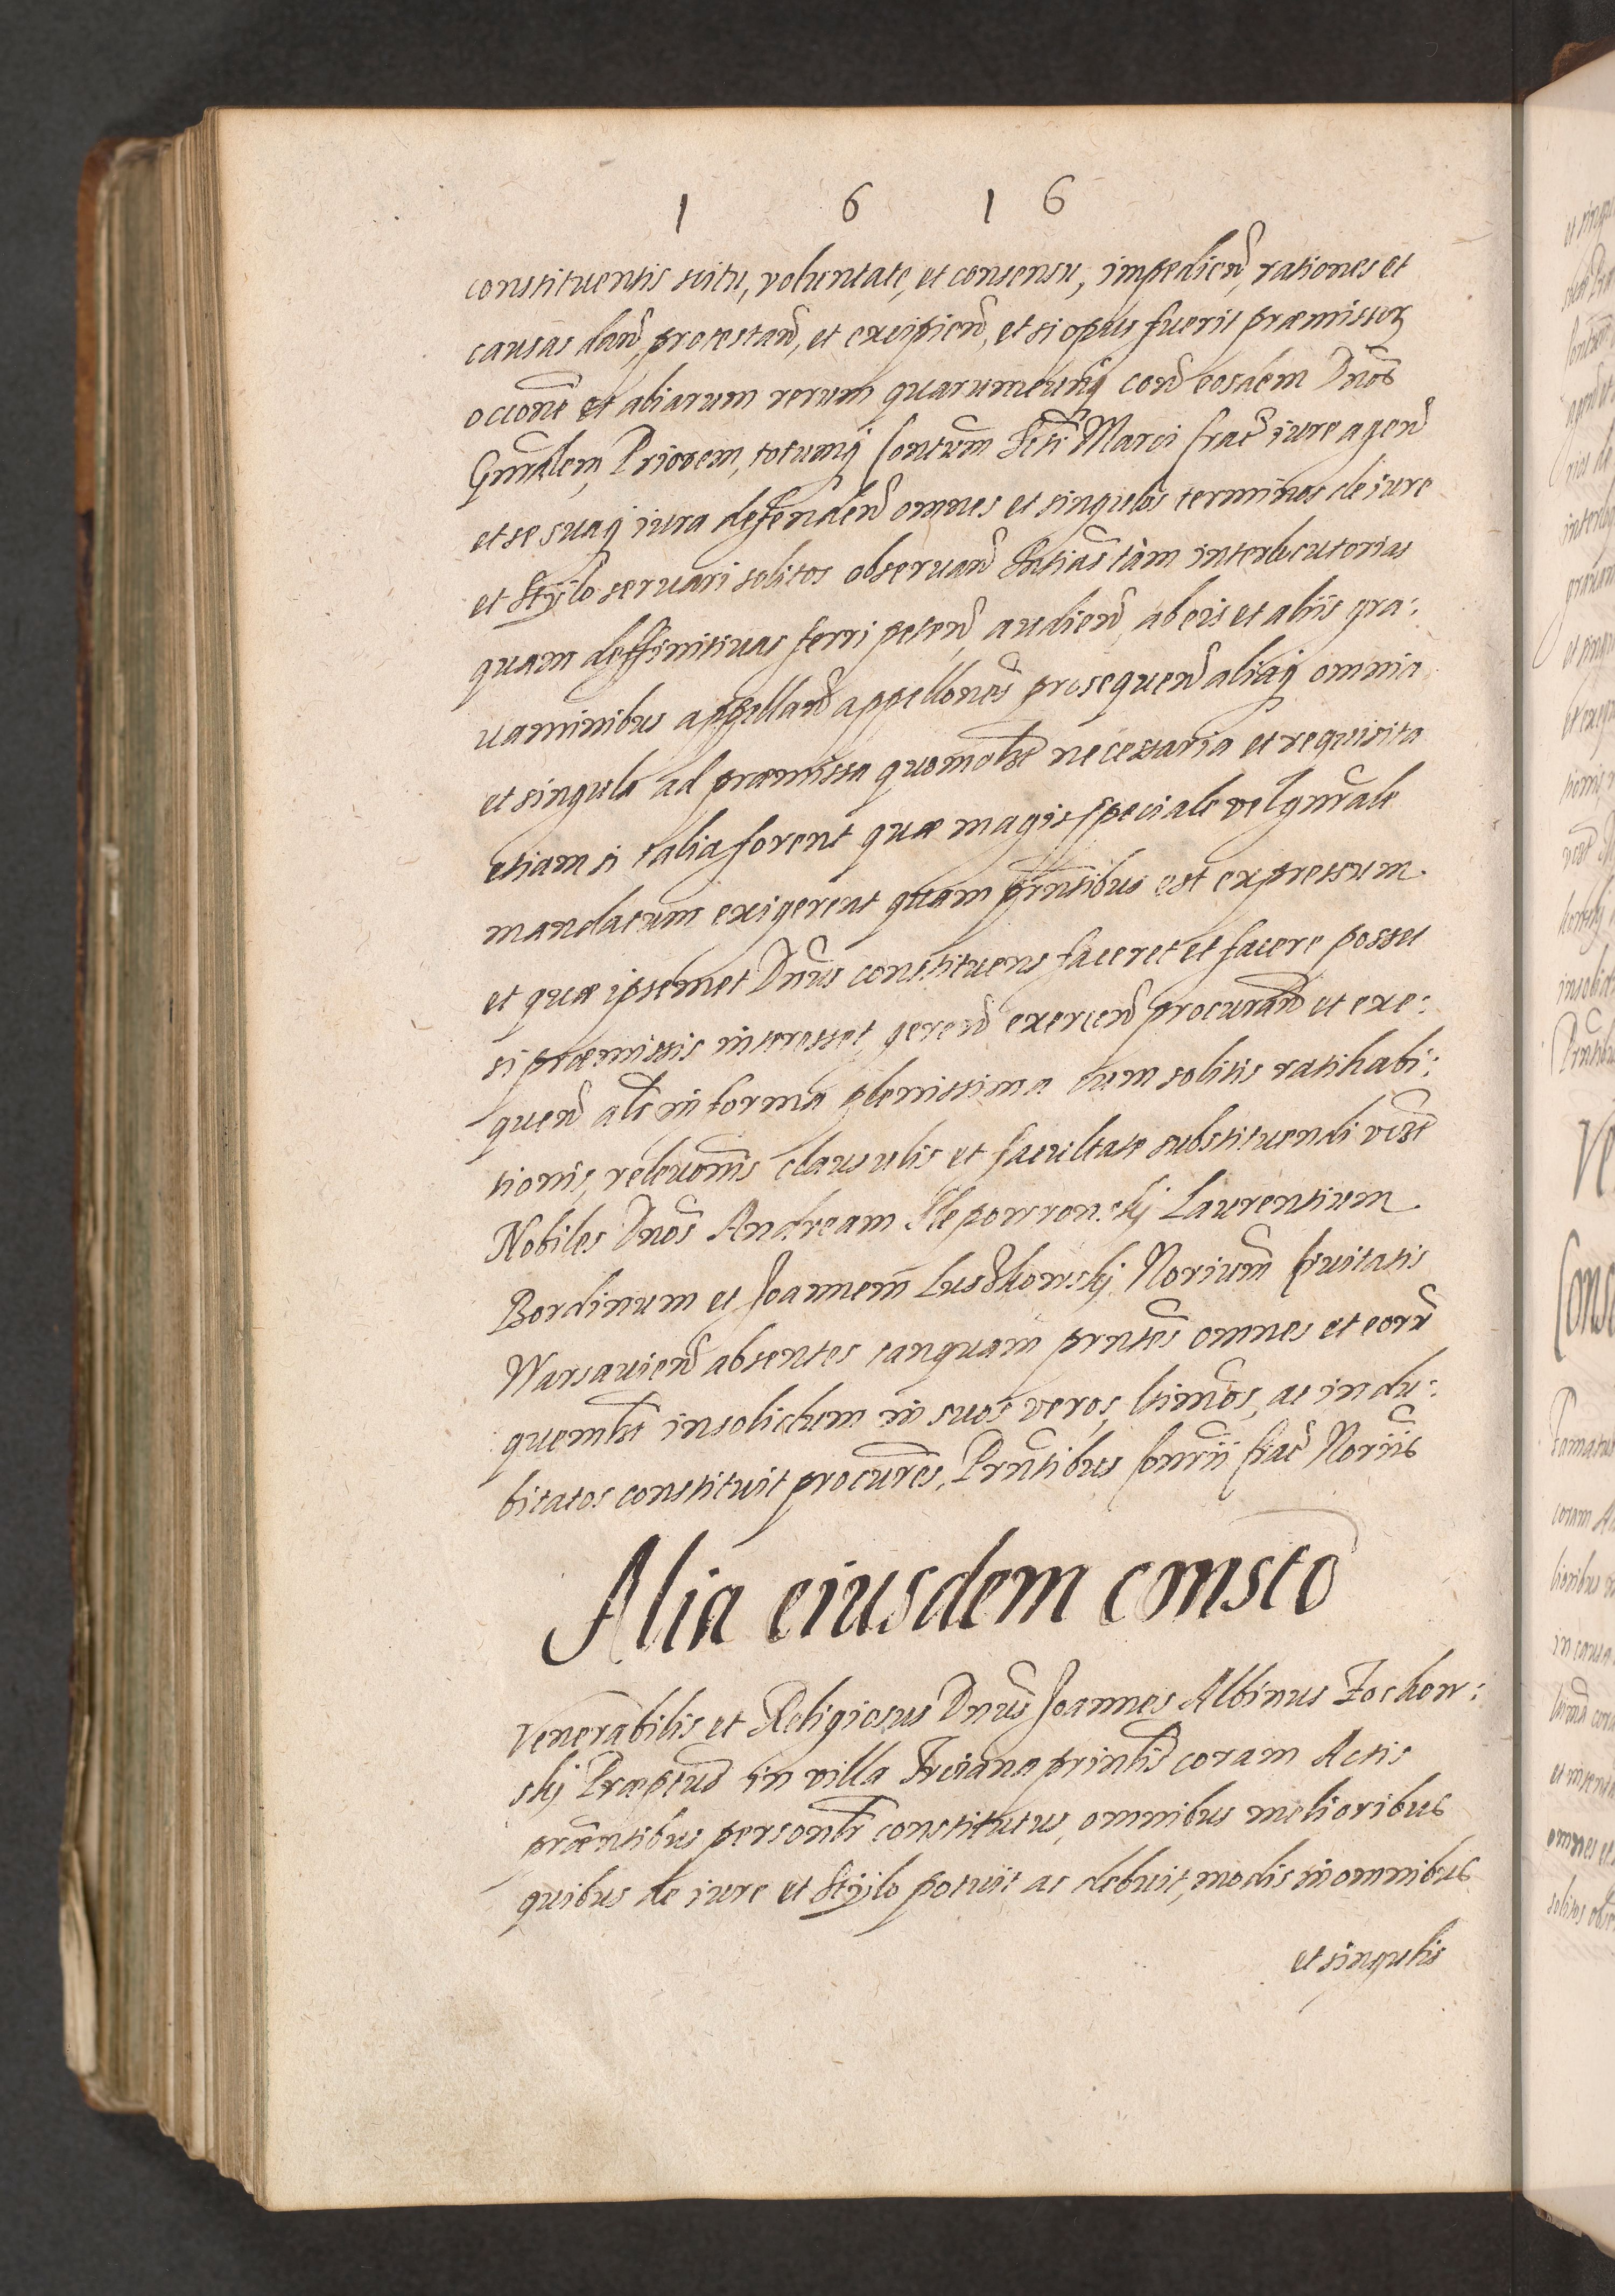 1 6 1 6
constituentis scitu, voluntate, et consensu, impedien̄, rationes et
causas dan̄, protestan̄, et excipien̄, et si opus fuerit præmissorꝝ
occione et aliarum rerum quarumcunq̨ con̄ eosdem Dnōs
Gnrālem, Priorem, totumq̨ Contum̄ Scti Marci Crac̄ iure agen̄
et se suaq̨ iura defenden̄ omnes et singulos terminos de iure
et Stÿlo seruari solitos obseruan̄ Sntias̄ tàm interlocutorias
quam deffinitiuas ferri peten̄, audien̄, ab eis et aliis gra:
uaminibus appellan̄ appellones̄ prosequen̄ aliaq̨ omnia
et singula ad præmissa quomolꝫt necessaria et requisita
etiam si talia forent quæ magis speciale vel gnrāle
mandatum exigerent quam prn̄tibus est expressum.
et quæ ipsemet Dnūs constituens faceret et facere posset
si præmissis interesset, geren̄ exercen̄ procuran̄ et exe:
quen̄ als̄ in forma plenissima cum solitis ratihabi:
tionis, releuonis̄ clausulis et facultate substituendi vcꝫt
Nobiles Dnōs Andream Slepowronskj Laurentium
Bordinum et Joannem Luszkowskj Norium̄ Ciuitatis
Warsauien̄ absentes tanquam prntēs omnes et eorū
quemlꝫt insolidum in suos veros, ltimōs, ac indu:
bitatos constituit procurēs, Prn̄tibus Conrii Crac̄ Noriis
Alia eiusdem constō
Venerabilis et Religiosus Dnūs Joannes Albinus
skj Præptus̄ in villa coram Actis
præntibus personlr̄ constitutus, omnibus melioribus
quibus de iure et Stÿlo potuit ac debuit, modis in omnibus
et singulis